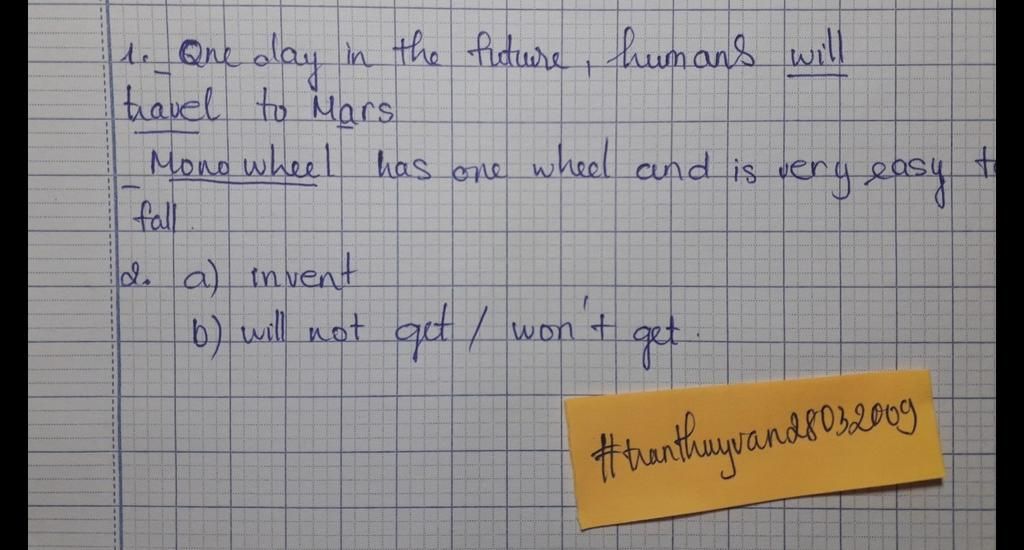 1. _ One day in the future, humans will
travel to Mars
_ Mono wheel has one wheel and is very easy t
fall.
2. a) invent
b) will not get / won't get.
#tranthuyvand28032009